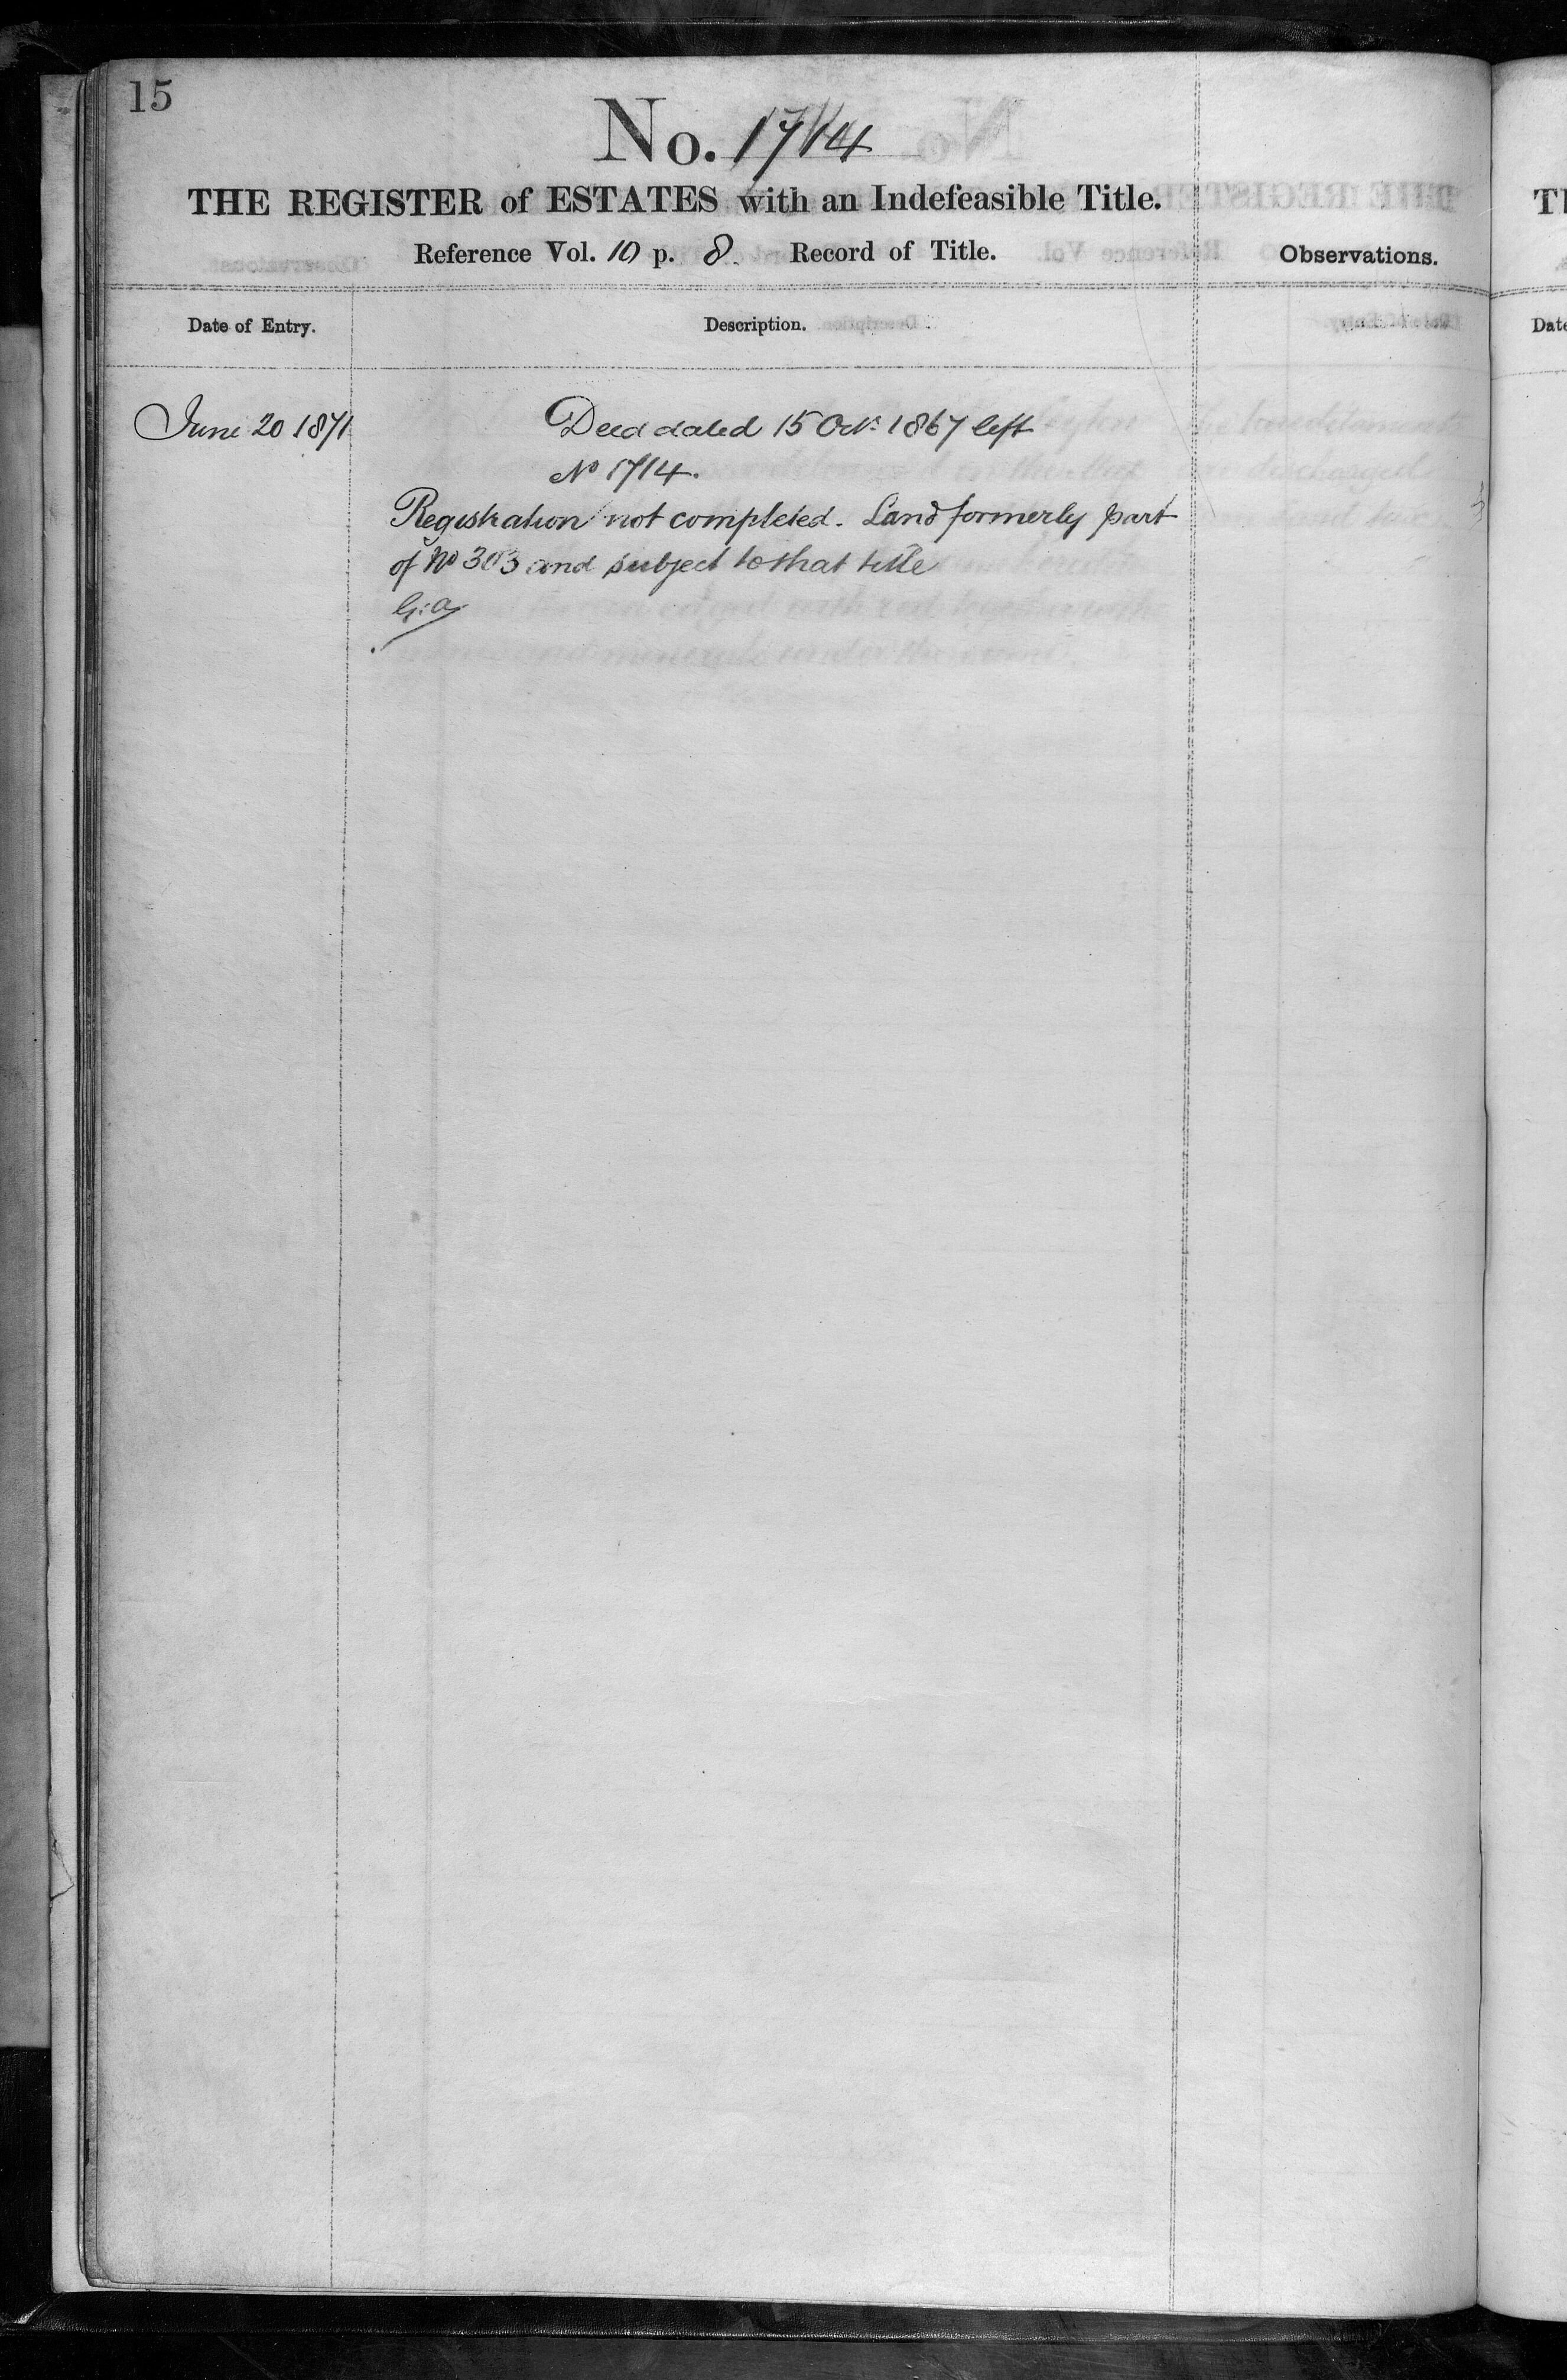 15
No. 1714
THE REGISTER of ESTATES with an Indefeasible Title.
Reference Vol. 10 p. 8. Record of Title.
Observations.
Date of Entry.
Description.
June 20 1871
Deed dated 15 Oct. 1867 left
No 1714.
Registration not completed. Land formerly part
of No 303 and subject to that title
G.A.